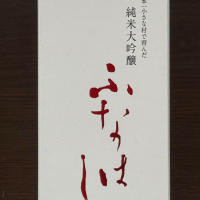 本一小さな村で育んだ
純米大吟醸
ふなはし